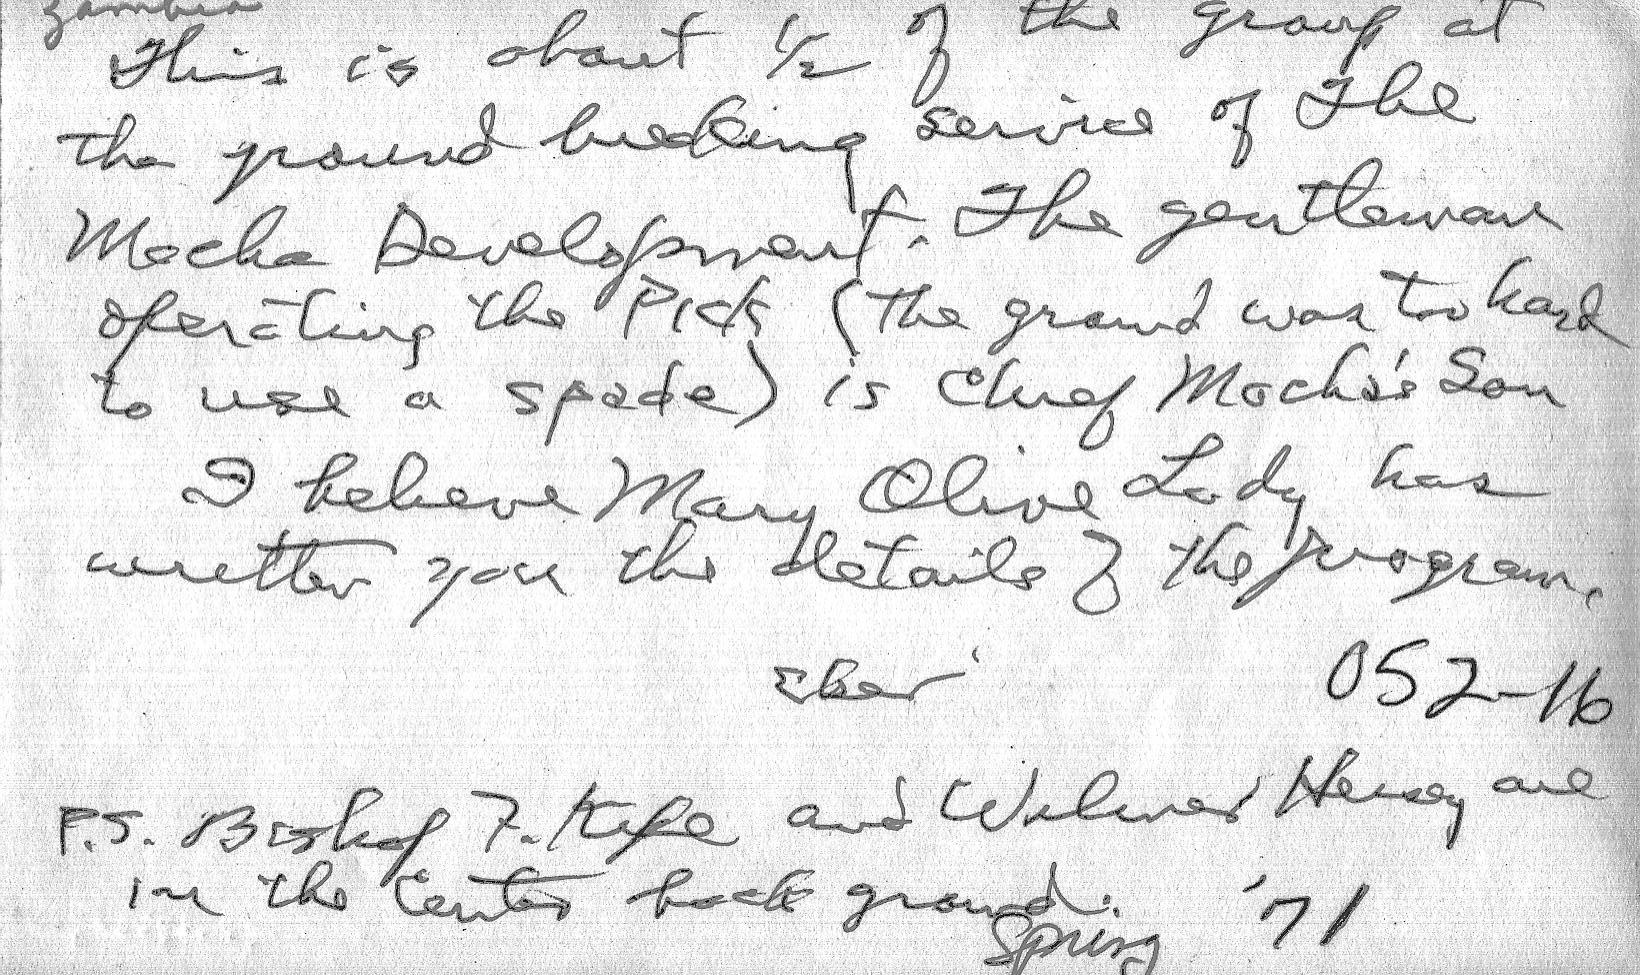 Zambia
This is about 1/2 of the group at
the ground breaking service of The
Mocha Development. The gentleman
operating the Pick (the ground was too hard
to use a spade) is Chief Mocha's Son
I believe Mary Olive Lady has
written you the details of the program.
Eber
052-16
P.S. Bishop F. Kipe and Wilmer Heisey are
in the center back ground.
Spring '71